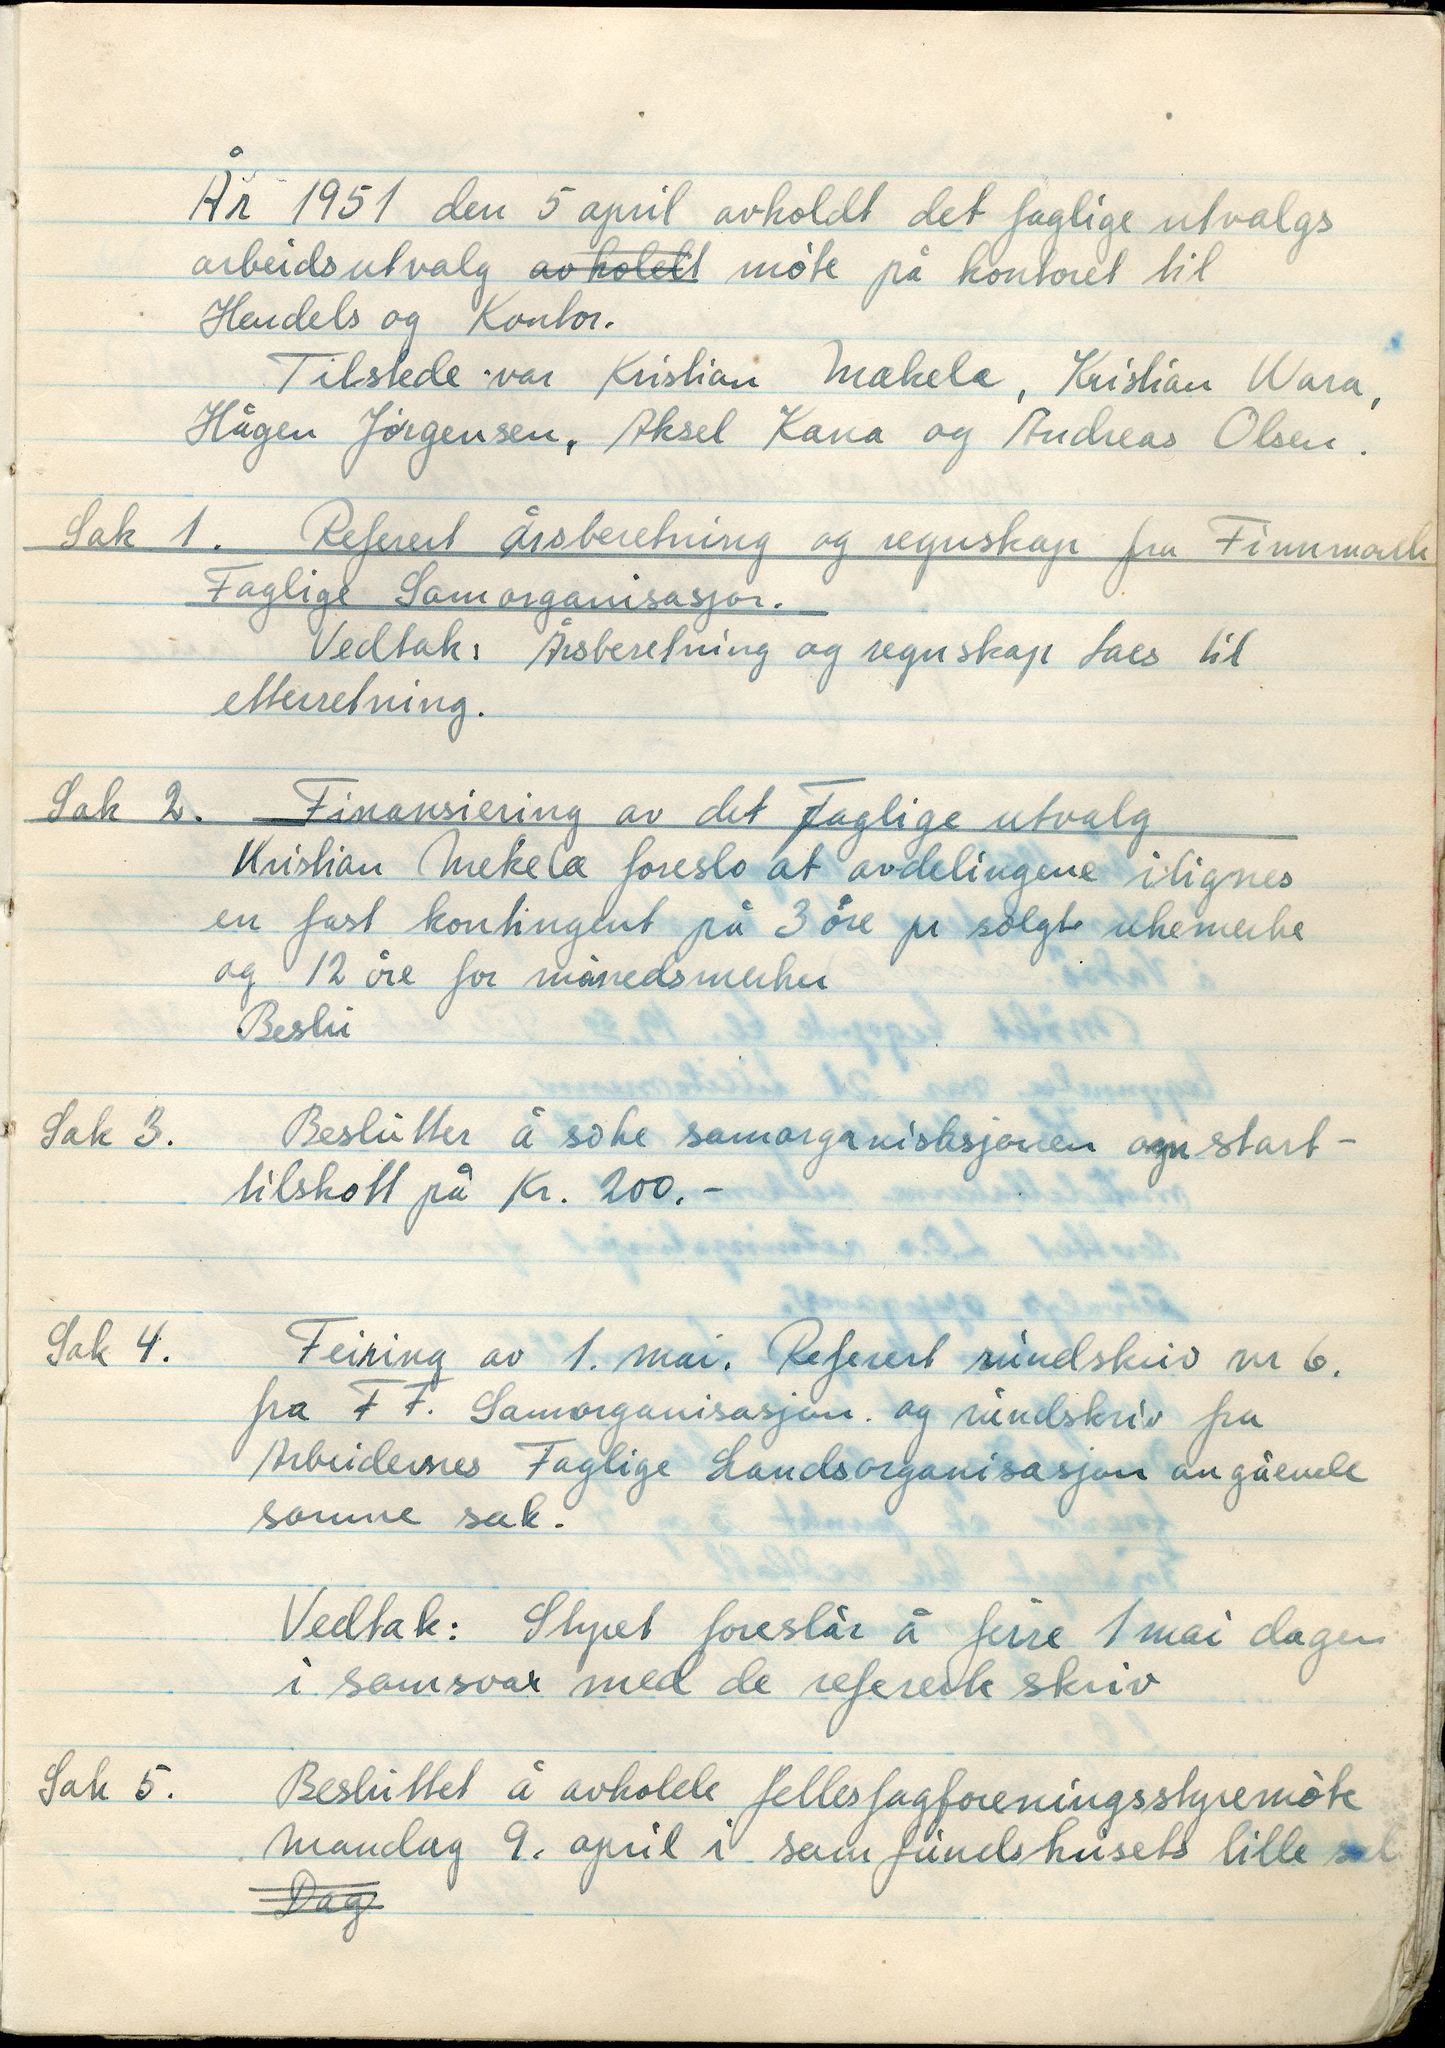 År 1951 den 5 april avholdt det faglige utvalgs
arbeidsutvalg avholdt møte på kontoret til
Handels og Kontor.
Tilstede var Kristian Makela, Kristian Wara,
Hågen Jørgensen, Aksel Kana og Andreas Olsen.
Sak 1. Referert årsberetning og regnskap fra Finnmark
Faglige Samorganisasjon.
Vedtak: Årsberetning og regnskap taes til
etterretning.
Sak 2. Finansiering av det Faglige utvalg
Kristian Mekela foreslo at avdelingene ilignes
en fast kontingent på 3 öre pr solgt ukemerke
og 12 öre for månedsmerker
Beslu
Sak 3. Beslutter å søke samorganisasjonen om start-
tilskott på Kr. 200.-
Sak 4. Feiring av 1. mai. Referert rundskriv nr 6.
fra F F. Samorganisasjon. og rundskriv fra
Arbeidernes Faglige Landsorganisasjon angående
samme sak.
Vedtak: Styret foreslår å feire 1 mai dagen
i samsvar med de refererte skriv
Sak 5. Besluttet å avholde fellesfagforeningsstyremøte
mandag 9. april i samfundshusets lille sal
Dag